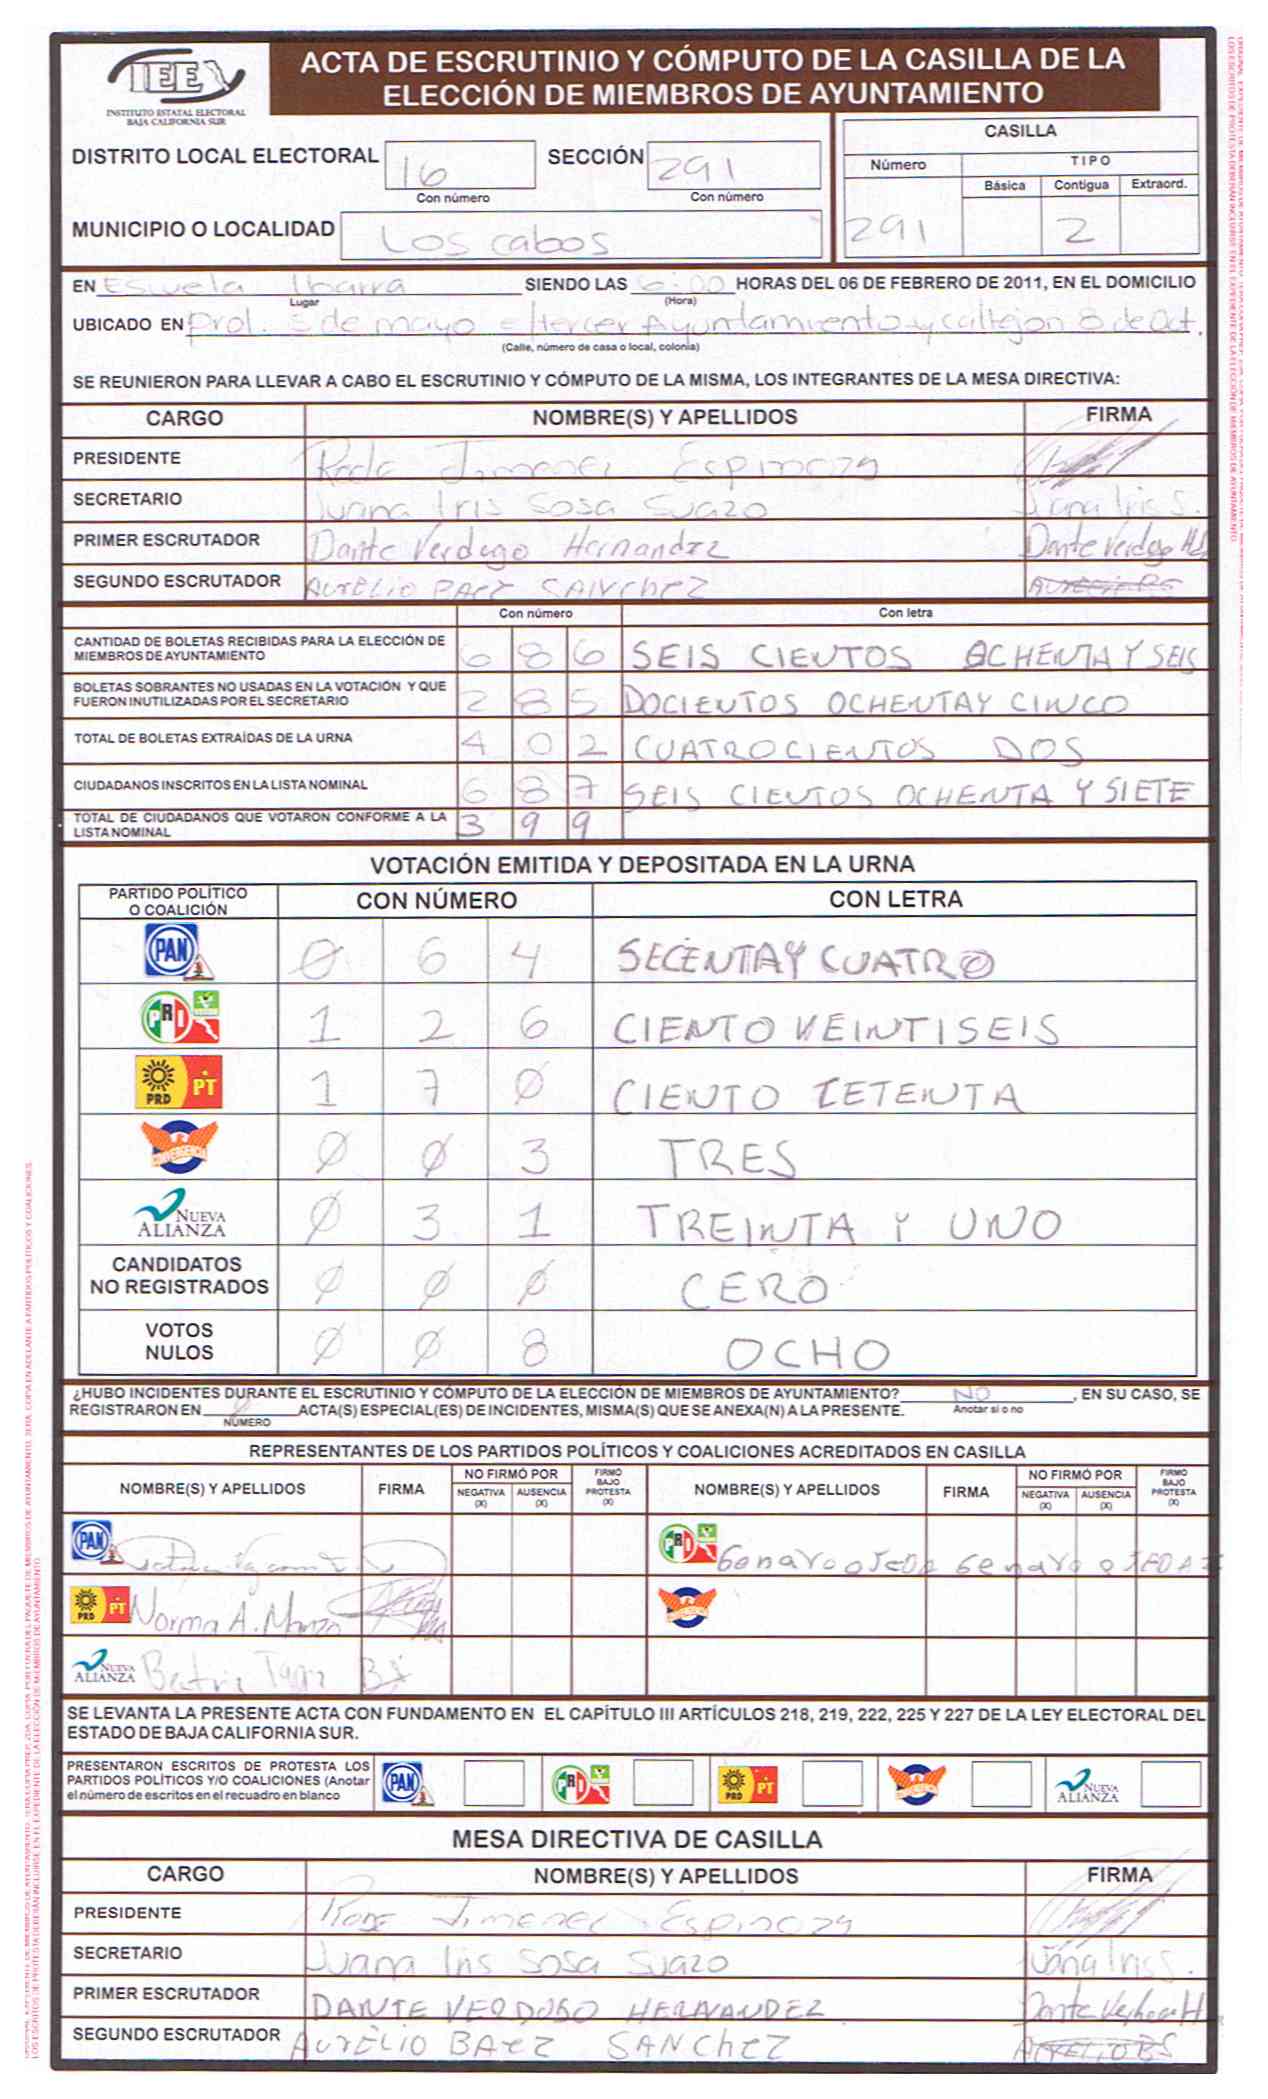 IEEX
INSTITUTO ESTATAL ELECTORAL
BAJA CALIFORNIA SUR
ACTA DE ESCRUTINIO Y CÓMPUTO DE LA CASILLA DE LA
ELECCIÓN DE MIEMBROS DE AYUNTAMIENTO
DISTRITO LOCAL ELECTORAL 16 SECCIÓN 291
Con número Con número
MUNICIPIO O LOCALIDAD Los cabos
CASILLA
Número TIPO
Básica Contigua Extraord.
291 2
EN Escuela Ibarra SIENDO LAS 6:00 HORAS DEL 06 DE FEBRERO DE 2011, EN EL DOMICILIO
Lugar (Hora)
UBICADO EN Prol. 5 de mayo e/tercer Ayuntamiento y callejon 8 de Oct.
(Calle, número de casa o local, colonia)
SE REUNIERON PARA LLEVAR A CABO EL ESCRUTINIO Y CÓMPUTO DE LA MISMA, LOS INTEGRANTES DE LA MESA DIRECTIVA:
CARGO NOMBRE(S) Y APELLIDOS FIRMA
PRESIDENTE Jimenez Espinoza
SECRETARIO Juana Iris Sosa Suazo Juana Iris S.
PRIMER ESCRUTADOR Dante Verdugo Hernandez Dante Verdugo Hdz
SEGUNDO ESCRUTADOR AURELIO BAEZ SANCHEZ
Con número Con letra
CANTIDAD DE BOLETAS RECIBIDAS PARA LA ELECCIÓN DE
MIEMBROS DE AYUNTAMIENTO 6 8 6 SEIS CIENTOS OCHENTA Y SEIS
BOLETAS SOBRANTES NO USADAS EN LA VOTACIÓN Y QUE
FUERON INUTILIZADAS POR EL SECRETARIO 2 8 5 DOCIENTOS OCHENTAY CINCO
TOTAL DE BOLETAS EXTRAÍDAS DE LA URNA 4 0 2 CUATROCIENTOS DOS
CIUDADANOS INSCRITOS EN LA LISTA NOMINAL 6 8 7 SEIS CIENTOS OCHENTA Y SIETE
TOTAL DE CIUDADANOS QUE VOTARON CONFORME A LA
LISTA NOMINAL 3 9 9
VOTACIÓN EMITIDA Y DEPOSITADA EN LA URNA
PARTIDO POLÍTICO
O COALICIÓN CON NÚMERO CON LETRA
PAN 0 6 4 SECENTAY CUATRO
PRI 1 2 6 CIENTO VEINTISEIS
PRD PT 1 7 0 CIENTO ZETENTA
CONVERGENCIA 0 0 3 TRES
NUEVA ALIANZA 0 3 1 TREINTA Y UNO
CANDIDATOS
NO REGISTRADOS 0 0 0 CERO
VOTOS
NULOS 0 0 8 OCHO
¿HUBO INCIDENTES DURANTE EL ESCRUTINIO Y CÓMPUTO DE LA ELECCIÓN DE MIEMBROS DE AYUNTAMIENTO? NO , EN SU CASO, SE
REGISTRARON EN ACTA(S) ESPECIAL(ES) DE INCIDENTES, MISMA(S) QUE SE ANEXA(N) A LA PRESENTE. Anotar si o no
NÚMERO
REPRESENTANTES DE LOS PARTIDOS POLÍTICOS Y COALICIONES ACREDITADOS EN CASILLA
NOMBRE(S) Y APELLIDOS FIRMA NO FIRMÓ POR NEGATIVA (X) AUSENCIA (X) FIRMÓ BAJO PROTESTA (X) NOMBRE(S) Y APELLIDOS FIRMA NO FIRMÓ POR NEGATIVA (X) AUSENCIA (X) FIRMÓ BAJO PROTESTA (X)
PAN PRI Genaro OJEDA Genaro OJEDA
PRD PT Norma A.
NUEVA ALIANZA
SE LEVANTA LA PRESENTE ACTA CON FUNDAMENTO EN EL CAPÍTULO III ARTÍCULOS 218, 219, 222, 225 Y 227 DE LA LEY ELECTORAL DEL
ESTADO DE BAJA CALIFORNIA SUR.
PRESENTARON ESCRITOS DE PROTESTA LOS
PARTIDOS POLÍTICOS Y/O COALICIONES (Anotar
el número de escritos en el recuadro en blanco
PAN PRI PRD PT NUEVA ALIANZA
MESA DIRECTIVA DE CASILLA
CARGO NOMBRE(S) Y APELLIDOS FIRMA
PRESIDENTE Jimenez Espinoza
SECRETARIO Juana Iris Sosa Suazo Juana Iris S.
PRIMER ESCRUTADOR DANTE VERDUGO HERNANDEZ
SEGUNDO ESCRUTADOR AURELIO BAEZ SANCHEZ AURELIO B S